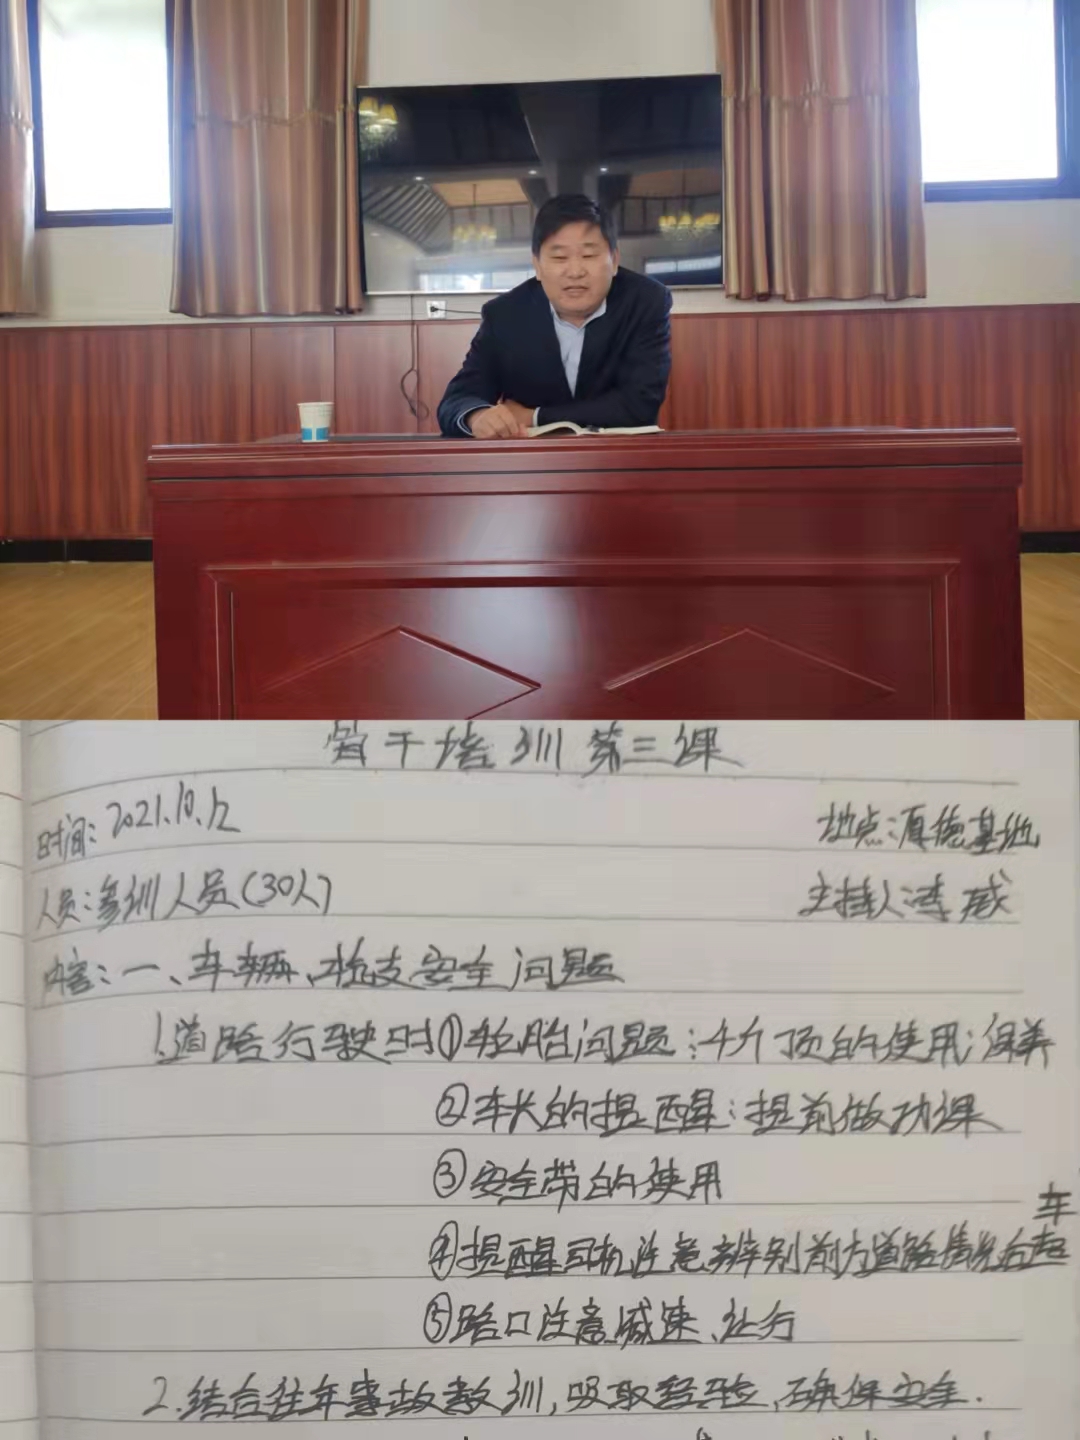 骨干培训第三课
时间：2021.10.12
地点：厚德基地
人员：参训人员（30人）
主持人：李威
内容：一、车辆、枪支安全问题
1.道路行驶时①轮胎问题；千斤顶的使用；保养
②车长的提醒：提前做功课
③安全带的使用
车
④提醒司机注意辨别前方道路情况后超
⑤路口注意减速、让行
2.结合往年事故教训，吸取经验，确保安全.